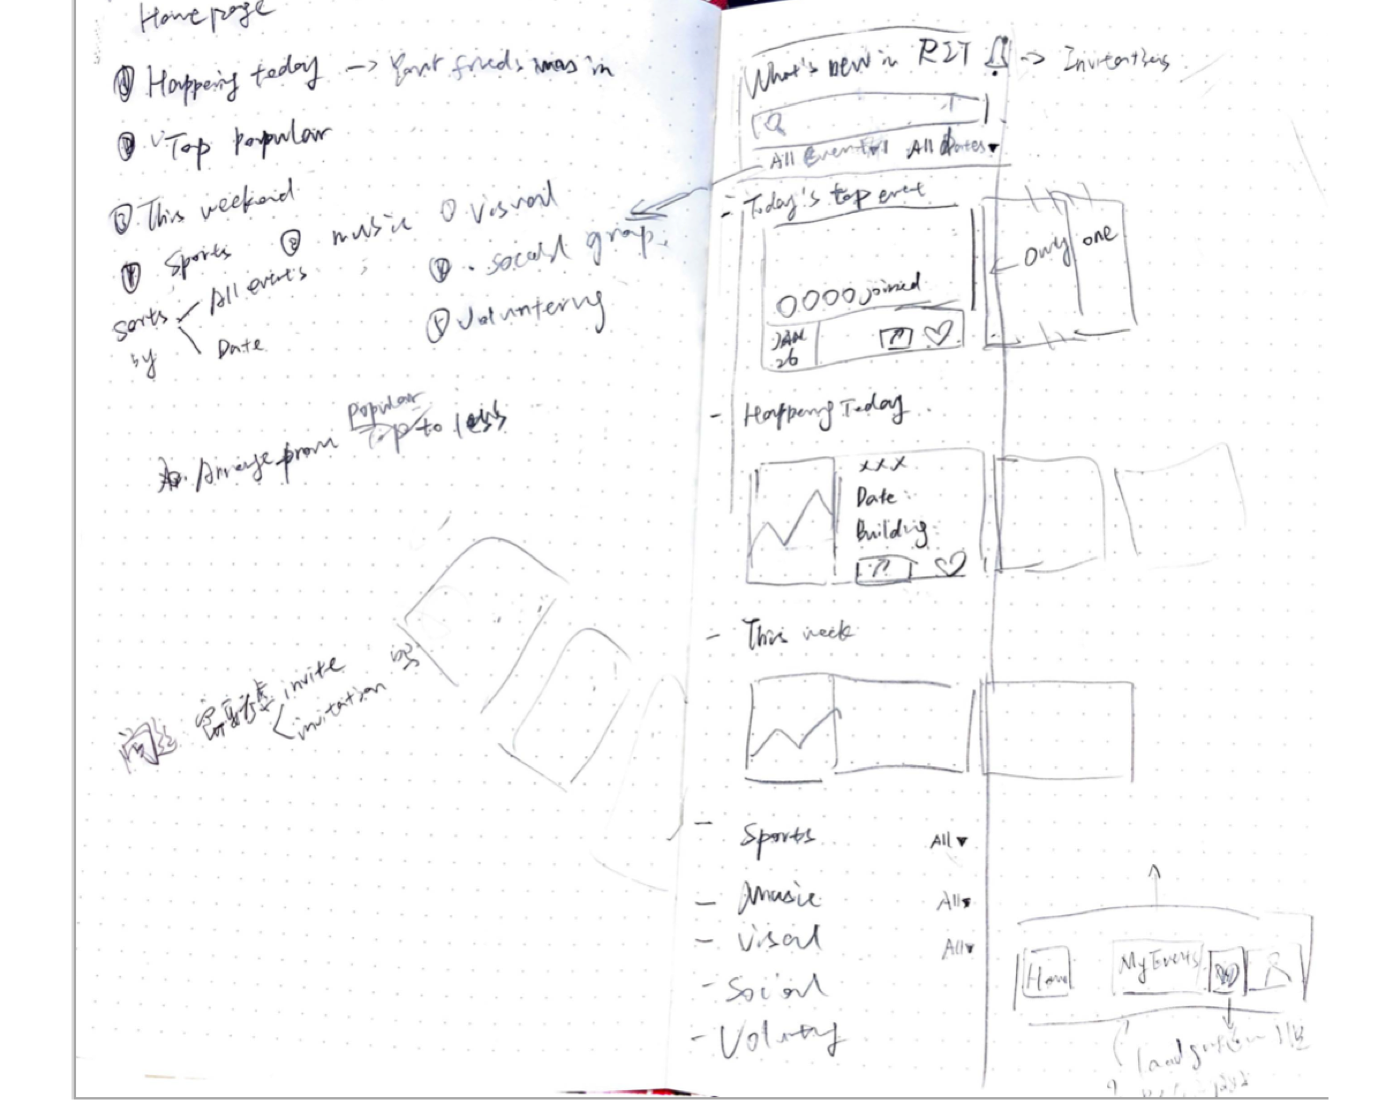 Homepage
① Happening today →
② Top popular
③ This weekend
④ Sports ② music
visual
social group.
voluntering
sorts by
All events
Date
Arrange from top to less
Popular
invite
invitation
What's new in RIT → Invitations
All Events ▾ All Dates ▾
- Today's top event
OOOO joined
JAN
26
only one
- Happening Today
xxx
Date
Building
- This week
- Sports All ▾
- Music All ▾
- Visual All ▾
- Social
- Voluntry
Home My Events